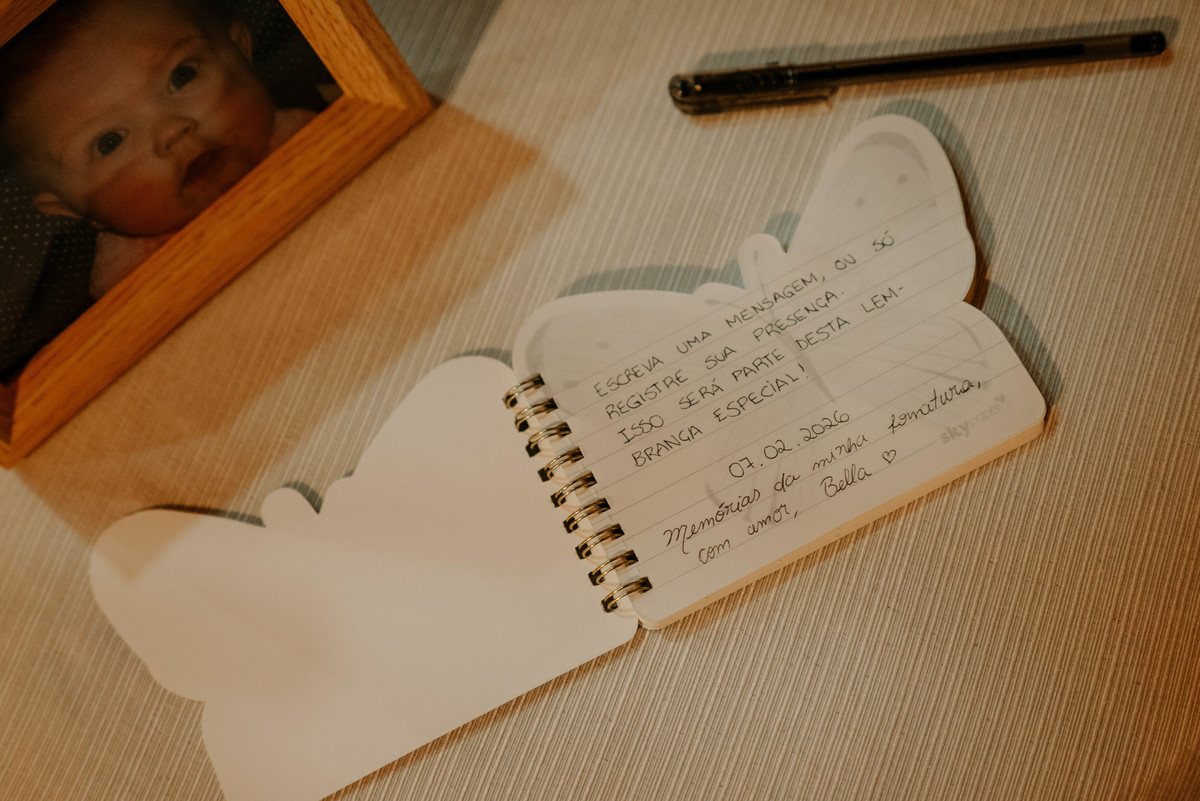 ESCREVA UMA MENSAGEM, OU SÓ
REGISTRE SUA PRESENÇA.
ISSO SERÁ PARTE DESTA LEM-
BRANÇA ESPECIAL!
07.02.2026
Memórias da minha formatura,
com amor, Bella ♡
skypaper